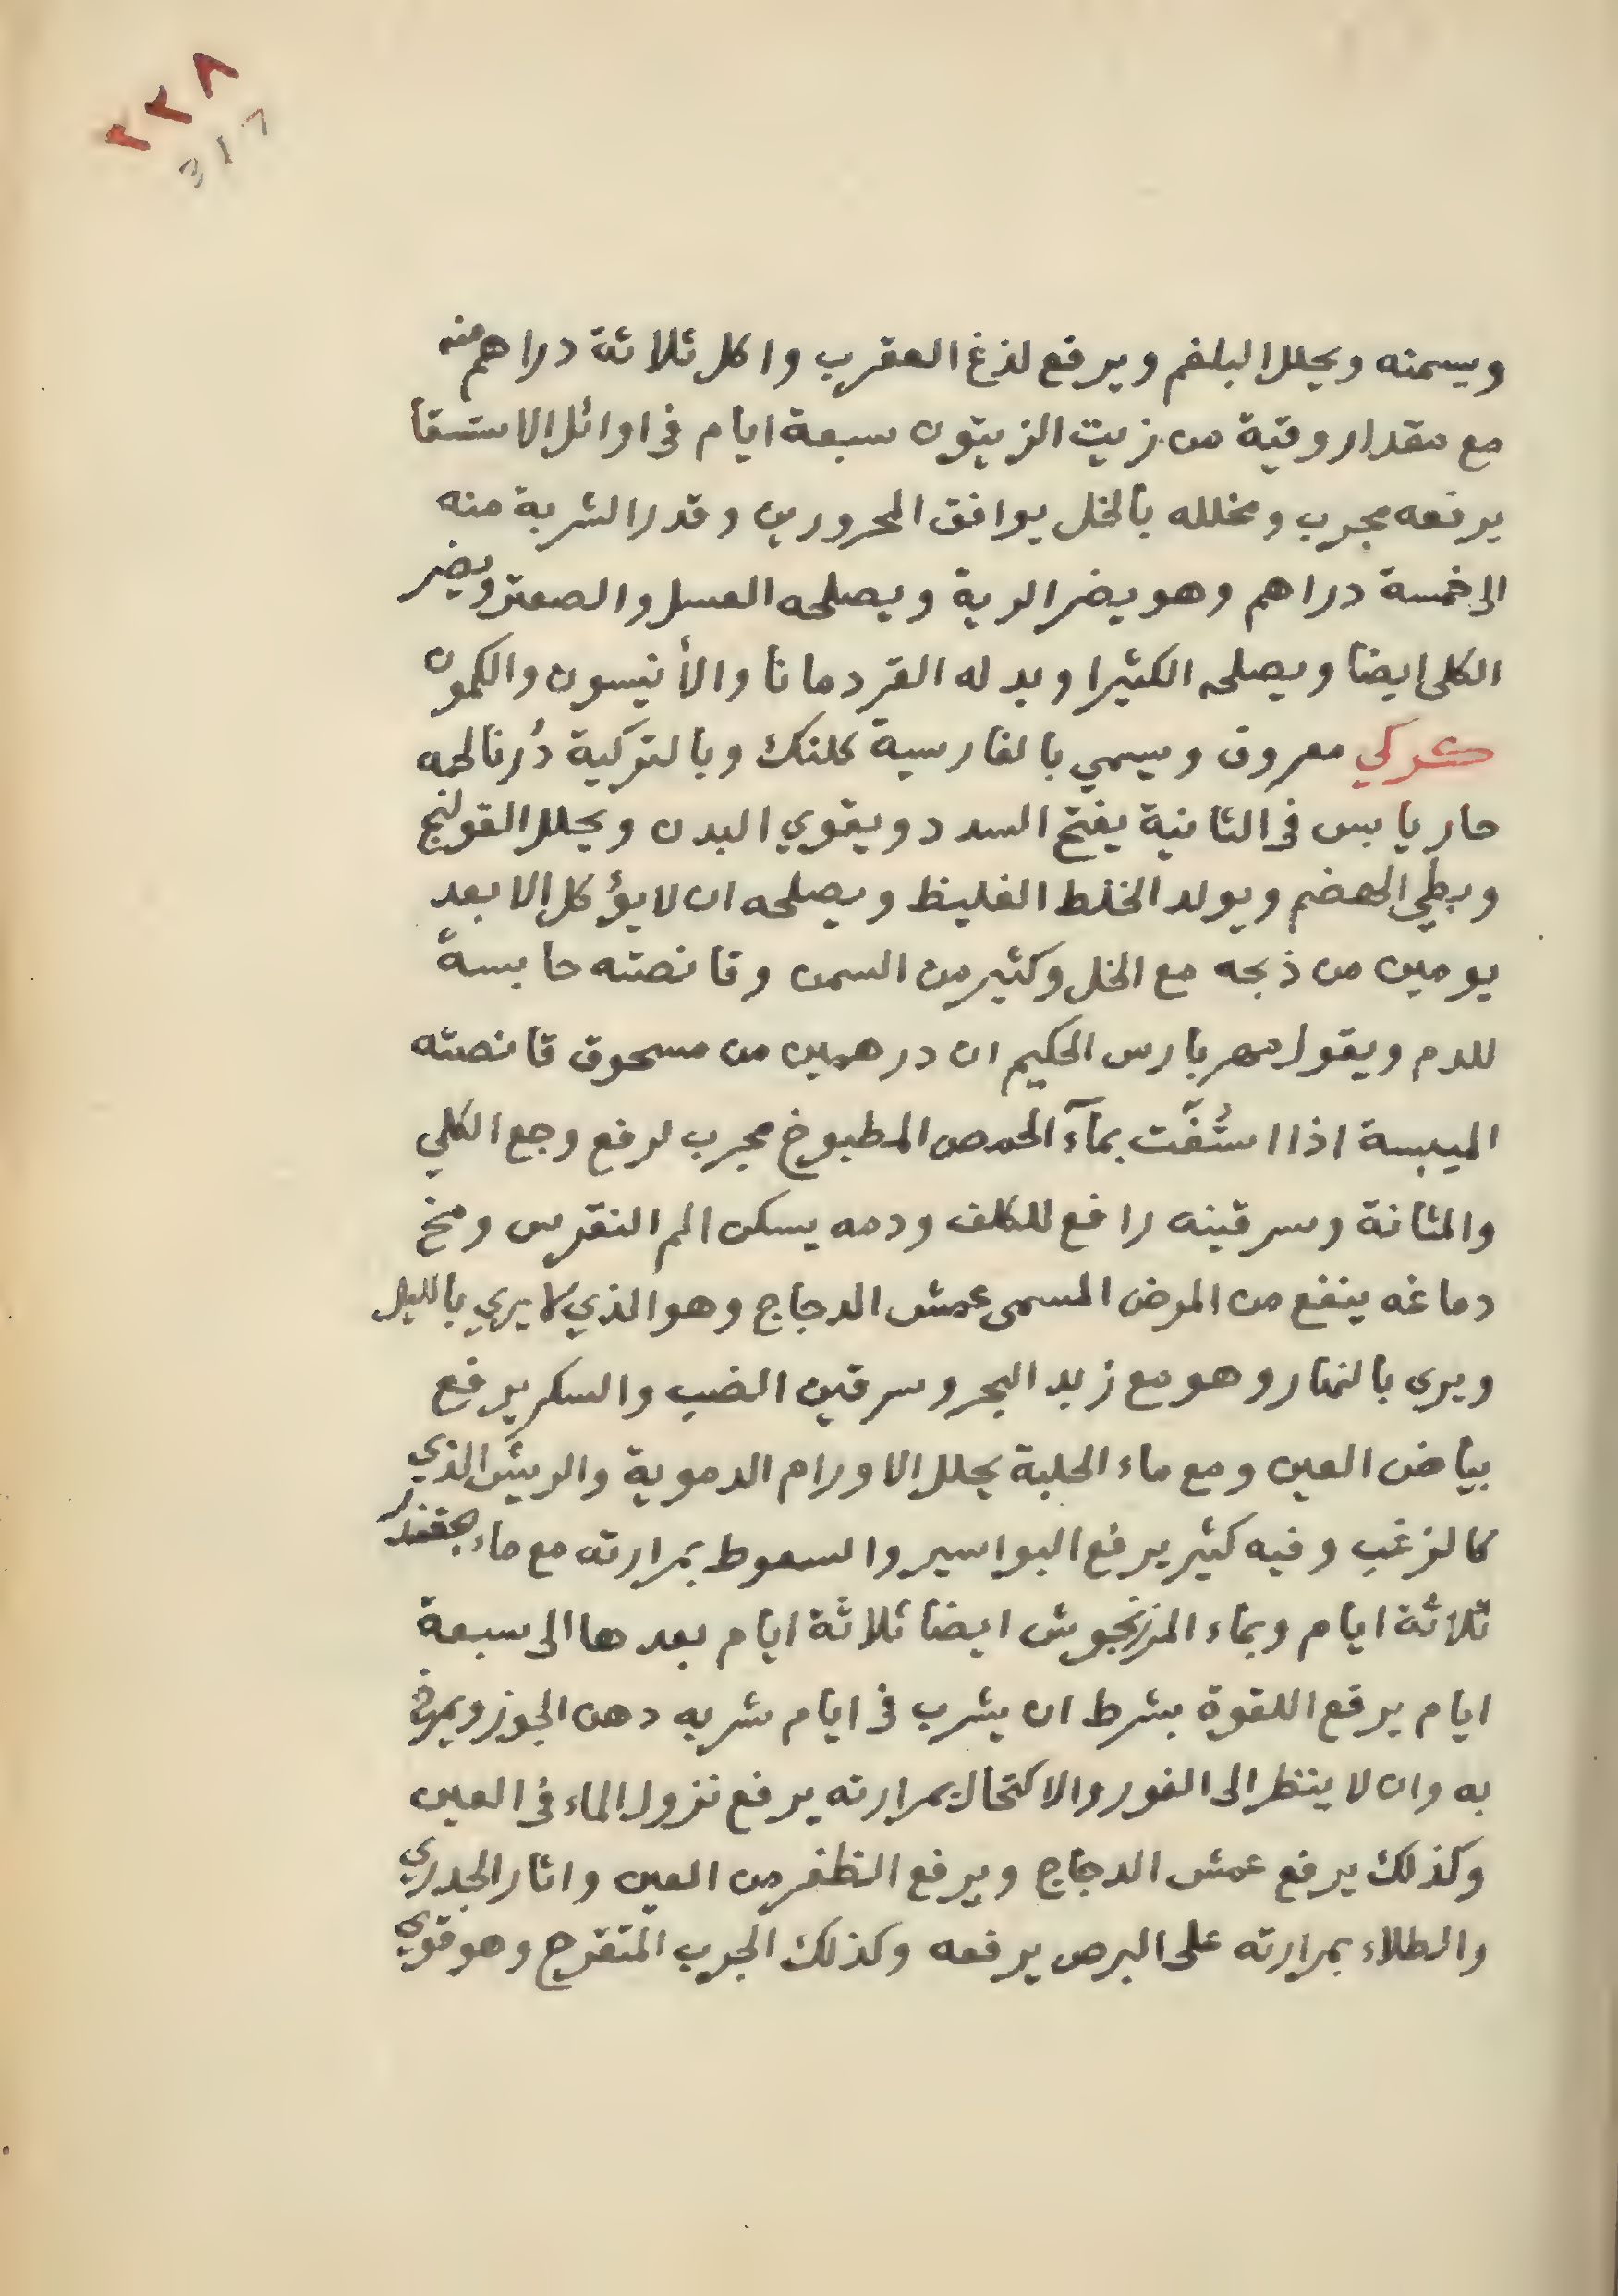 ٣٣٨
317
ويسمنه ويحلل البلغم ويرفع لذغ العقرب واكل ثلاثة دراهم منه
مع مقدار وقية من زيت الزيتون سبعة ايام في اوائل الاستسقا
يرفعه مجرب ومخلله بالخل يوافق المحرورين وقدر الشربة منه
الى خمسة دراهم وهو يضر الرية ويصلحه العسل والصعتر ويضر
الكلى ايضا ويصلحه الكثيرا وبدله القردمانا والأنيسون والكمون
كركي معروف ويسمي بالفارسية كلنك وبالتركية دُرنا لحمه
حار يابس في الثانية يفتح السدد ويقوي البدن ويحلل القولنج
وبطي الهضم ويولد الخلط الغليظ ويصلحه ان لا يؤكل الا بعد
يومين من ذبحه مع الخل وكثير من السمن وقانصته حابسة
للدم ويقول مهربارس الحكيم ان درهمين من مسحوق قانصته
الميبسة اذا استُفّت بمآء الحمص المطبوخ مجرب لرفع وجع الكلي
والمثانة وسرقينه رافع للكلف ودمه يسكن الم النقرس ومخ
دماغه ينفع من المرض المسمى عمش الدجاج وهو الذي لا يري بالليل
ويرى بالنهار وهو مع زبد البحر وسرقين الضب والسكر يرفع
بياض العين ومع ماء الحلبة يحلل الاورام الدموية والريش الذي
كالزغب وفيه كثير يرفع البواسير والسعوط بمرارته مع ماء جقندر
ثلاثة ايام وبماء المرزنجوش ايضا ثلاثة ايام بعدها الى سبعة
ايام يرفع اللقوة بشرط ان يشرب في ايام شربه دهن الجوز ويمرخ
به وان لا ينظر الى النور والاكتحال بمرارته يرفع نزول الماء في العين
وكذلك يرفع عمش الدجاج ويرفع الظفر من العين واثار الجدري
والطلاء بمرارته على البرص يرفعه وكذلك الجرب المتقرح وهو قوي